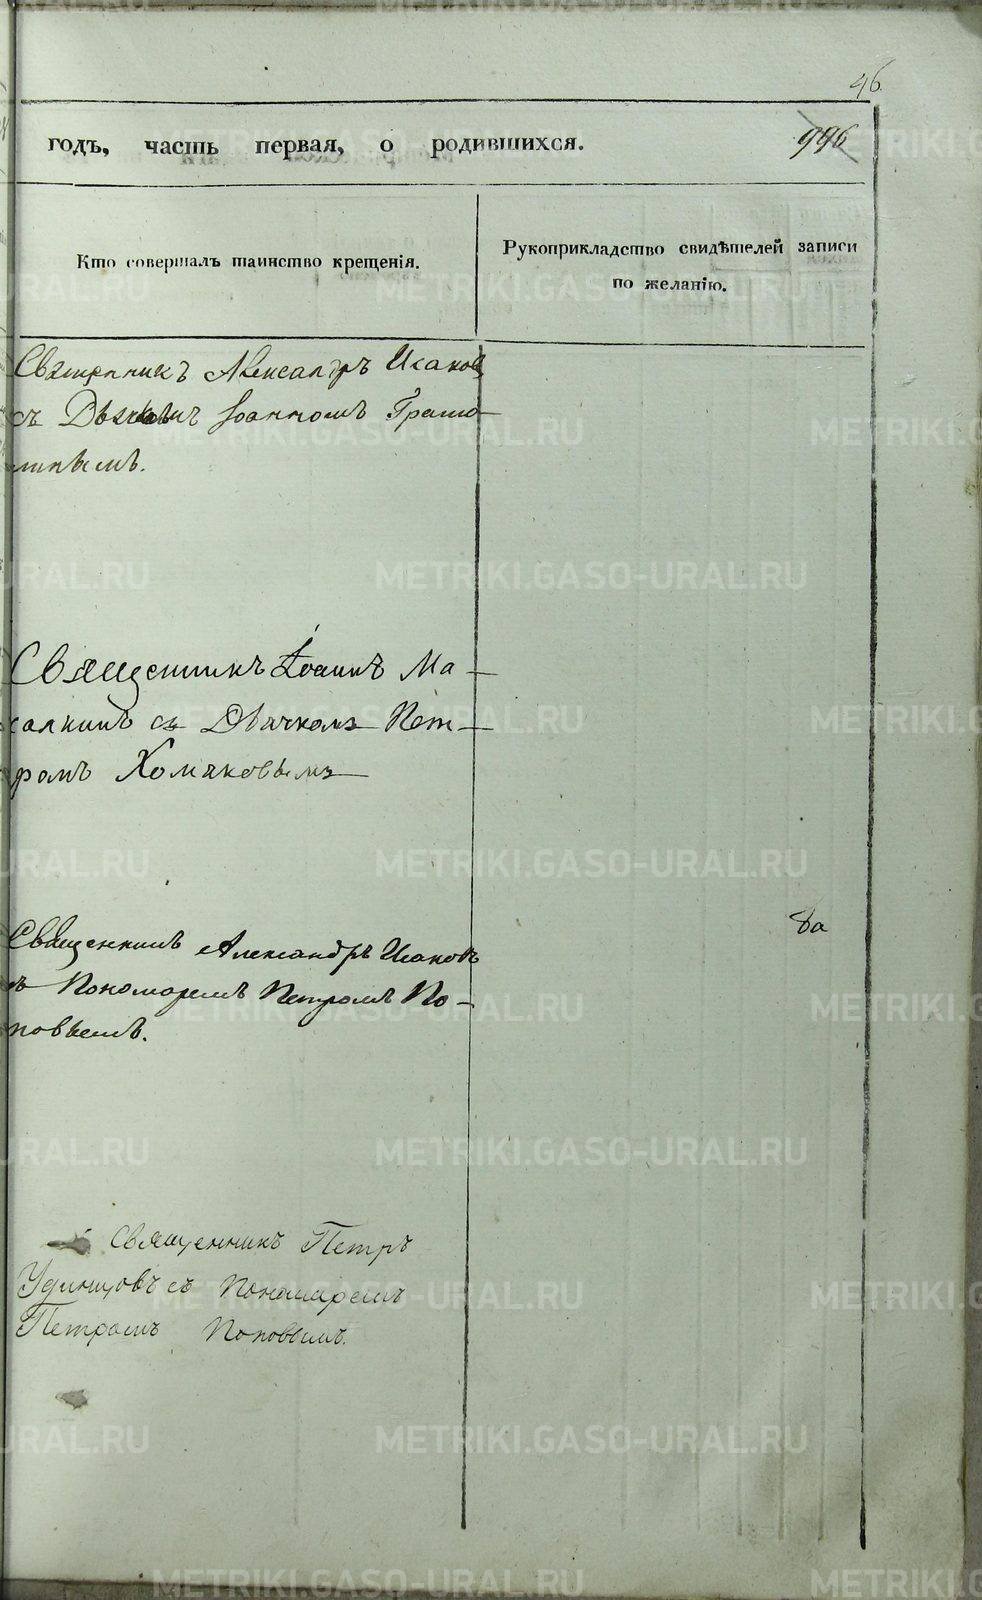 46
годъ, часть первая, о родившихся. 996
Кто совершалъ таинство крещенія.
Рукоприкладство свидѣтелей записи
по желанію.
Священникъ Александръ Исаковъ
съ Дьячкомъ Іоанномъ
Священникъ Іоаннъ Ма-
съ Дьячкомъ Пет-
ромъ Хомяковымъ
Священникъ Александръ Исаковъ
съ Пономаремъ Петромъ По-
повымъ.
8а
Священникъ Петръ
Удинцовъ съ Пономаремъ
Петромъ Поповымъ.
METRIKI.GASO-URAL.RU